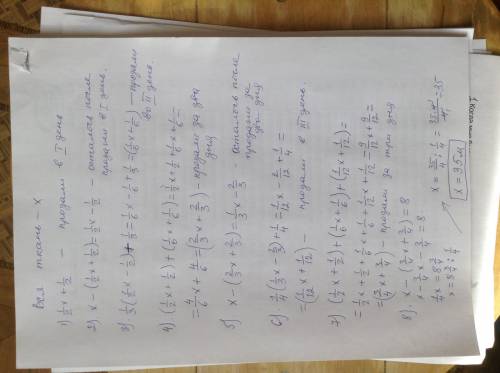 Вся ткань - x
1) 1/2x + 1/2 — продали в I день
2) x - (1/2x + 1/2) = 1/2x - 1/2 - осталось после
продажи в I день.
3) 1/3(1/2x - 1/2) + 1/3 = 1/6x - 1/6 + 1/3 = (1/6x + 1/6) — продали
во II день.
4) (1/2x + 1/2) + (1/6x + 1/6) = 1/2x + 1/2 + 1/6x + 1/6 =
= 4/6x + 4/6 = (2/3x + 2/3) - продали за два
дня
5) x - (2/3x + 2/3) = 1/3x - 2/3 осталось после
продажи за
два дня
6) 1/4(1/3x - 2/3) + 1/4 = 1/12x - 2/12 + 1/4 =
= (1/12x + 1/12) - продали в III день.
7) (1/2x + 1/2) + (1/6x + 1/6) + (1/12x + 1/12) =
= 1/2x + 1/2 + 1/6x + 1/6 + 1/12x + 1/12 = 9/12x + 9/12 =
= (3/4x + 3/4) - продали за три дня
8) x - (3/4x + 3/4) = 8
x - 3/4x - 3/4 = 8
1/4x = 8 3/4
x = 8 3/4 : 1/4
x = 35/4 : 1/4 = 35·4/4 = 35
x = 35 м